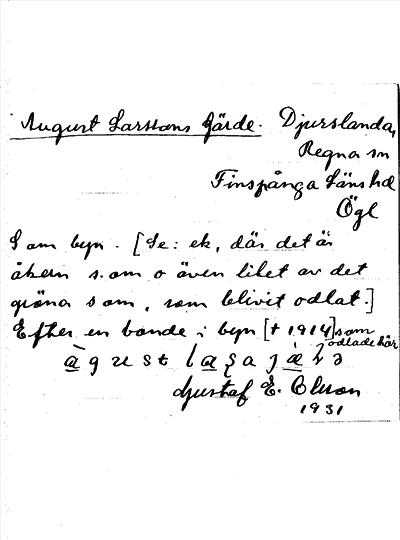 August Larssons Gärde. Djurslanda,
Regna sn
Finspånga Läns hd
Ögl
I am byn. [Se: ek, där det är
åkern s.om o även litet av det
gröna s om, som blivit odlat.]
Efter en bonde i byn [† 1914] som
odlade här
Gustaf E. Olsson
1931